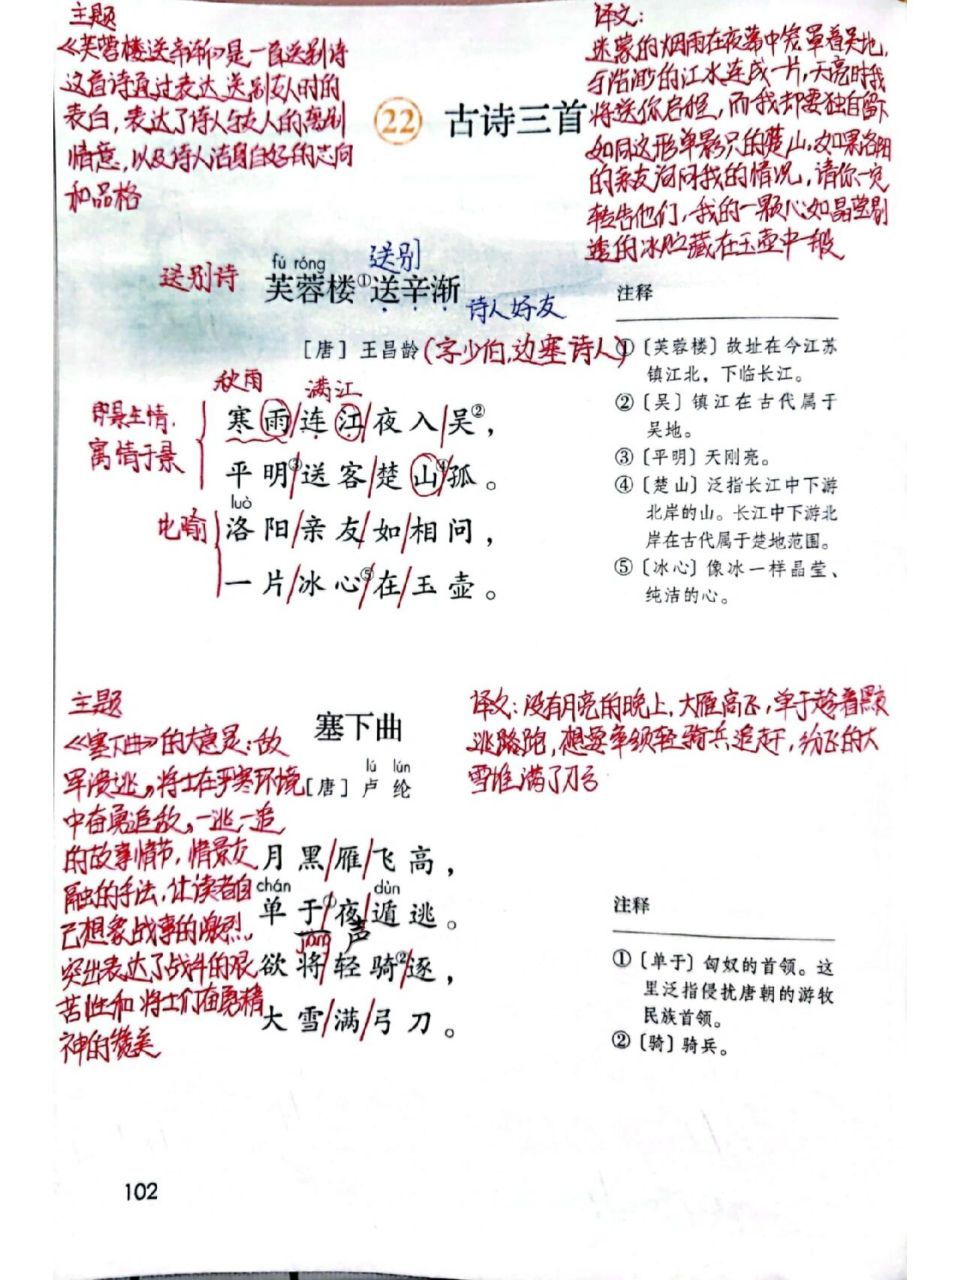 主题
《芙蓉楼送辛渐》是一首送别诗
这首诗通过表达送别友人时的
表白，表达了诗人与友人的离别
情意，以及诗人洁身自好的志向
和品格
22 古诗三首
译文：
迷蒙的烟雨在夜幕中笼罩着吴地，
与浩渺的江水连成一片，天亮时我
将送你启程，而我却要独自留下
如同这形单影只的楚山，如果洛阳
的亲友询问我的情况，请你一定
转告他们，我的一颗心如晶莹剔
透的冰贮藏在玉壶中一般
送别诗
fú róng
送别
芙蓉楼①送辛渐
诗人好友
[唐] 王昌龄(字少伯，边塞诗人)
秋雨
满江
即景生情，
寓情于景
寒雨/连江/夜入/吴②，
平明③/送客/楚山④/孤。
luò
比喻
洛阳/亲友/如/相问，
一片/冰心⑤/在/玉壶。
注释
①〔芙蓉楼〕故址在今江苏
镇江北，下临长江。
②〔吴〕镇江在古代属于
吴地。
③〔平明〕天刚亮。
④〔楚山〕泛指长江中下游
北岸的山。长江中下游北
岸在古代属于楚地范围。
⑤〔冰心〕像冰一样晶莹、
纯洁的心。
主题
《塞下曲》的大意是：敌
军溃逃，将士在严寒环境
中奋勇追敌，一逃一追
的故事情节，情景交
融的手法，让读者自
己想象战事的激烈，
突出表达了战斗的艰
苦性和将士们奋勇精
神的赞美
塞下曲
lú lún
[唐] 卢纶
月黑/雁/飞高，
chán dùn
单于①/夜/遁逃。
jiāng 声
欲将/轻骑②/逐，
大雪/满/弓刀。
译文：没有月亮的晚上，大雁高飞，单于趁着黑夜
逃路跑，想要率领轻骑兵追赶，纷飞的大
雪堆满了刀弓
注释
①〔单于〕匈奴的首领。这
里泛指侵扰唐朝的游牧
民族首领。
②〔骑〕骑兵。
102